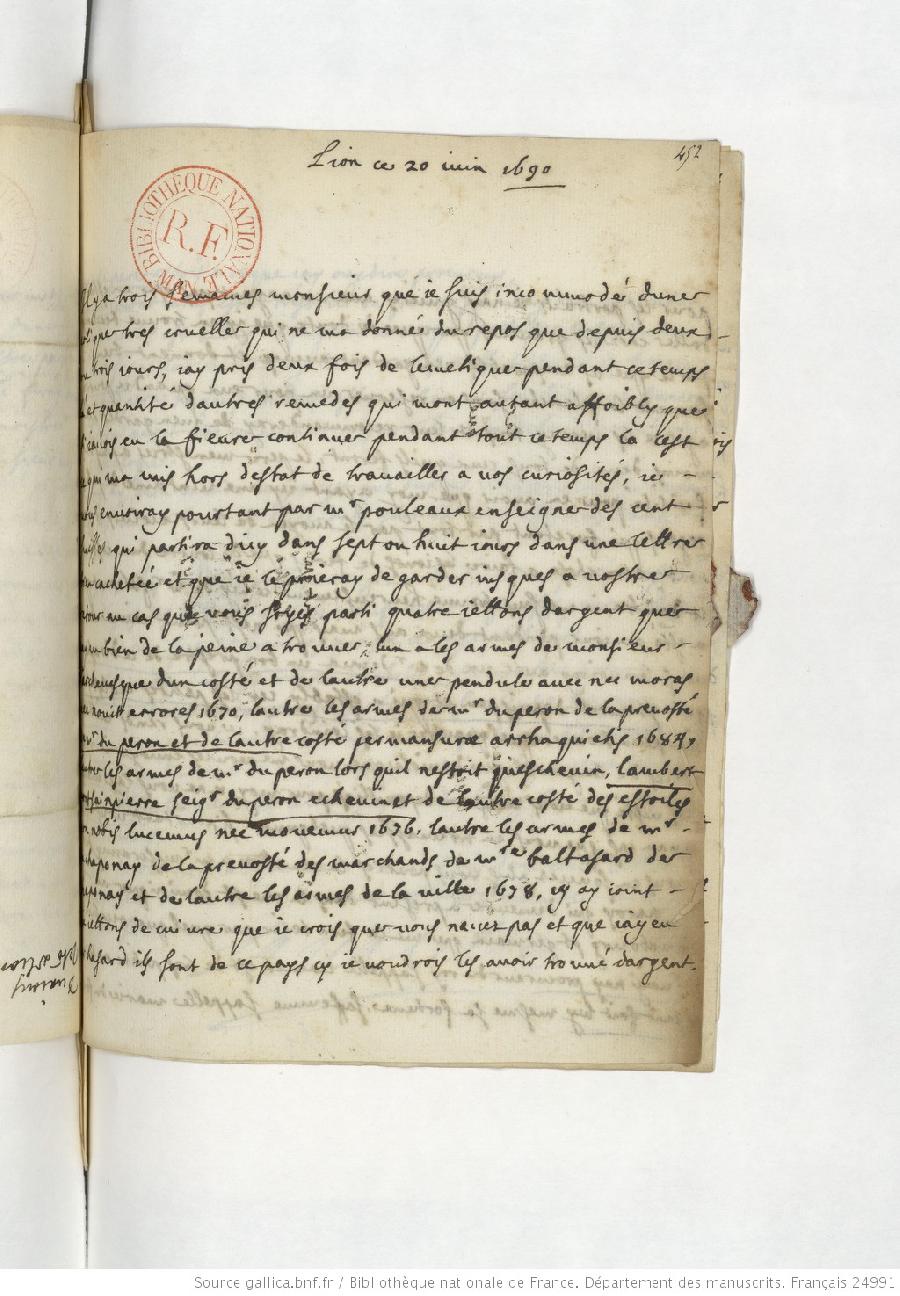 452
Lion ce 20 iuin 1690
BIBLIOTHÈQUE NATIONALE MAN
R.F.
Il y a trois semaines monsieur que ie suis incommodé dune
tres cruelle qui ne ma donné du repos que depuis deux
trois iours, iay pris deux fois de lemetique pendant ce temps
et quantité dautres remedes qui mont autant affoibly que
eu la fieure continue pendant tout ce temps la cest
qui ma mis hors destat de travailler a vos curiosités, ie
envoiray pourtant par mr pouleaux enseigne des cent
qui partira dicy dans sept ou huit iours dans une lettre
cachetée et que ie le prieray de garder iusques a vostre
en cas que vous soyes parti quatre iettons dargent que
bien de la peine a trouver, lun a les armes de monsieur
dun costé et de lautre une pendule avec nec moras
errores 1670, lautre les armes de mr du peron de la prevosté
du peron et de lautre costé permansuræ 1684,
les armes de mr du peron lors quil nestoit queschevin, lambert
seigr du peron echevin et de lautre costé des estoiles
nobis lucemus nec movemur 1676. lautre les armes de mr
de la prevosté des marchands de mre baltasard de
et de lautre les armes de la ville 1678, iy ay ioint
iettons de cuivre que ie crois que vous navez pas et que iay eu
hasard ils sont de ce pays cy ie voudrois les avoir trouvé dargent.
Source gallica.bnf.fr / Bibliothèque nationale de France. Département des manuscrits. Français 24991